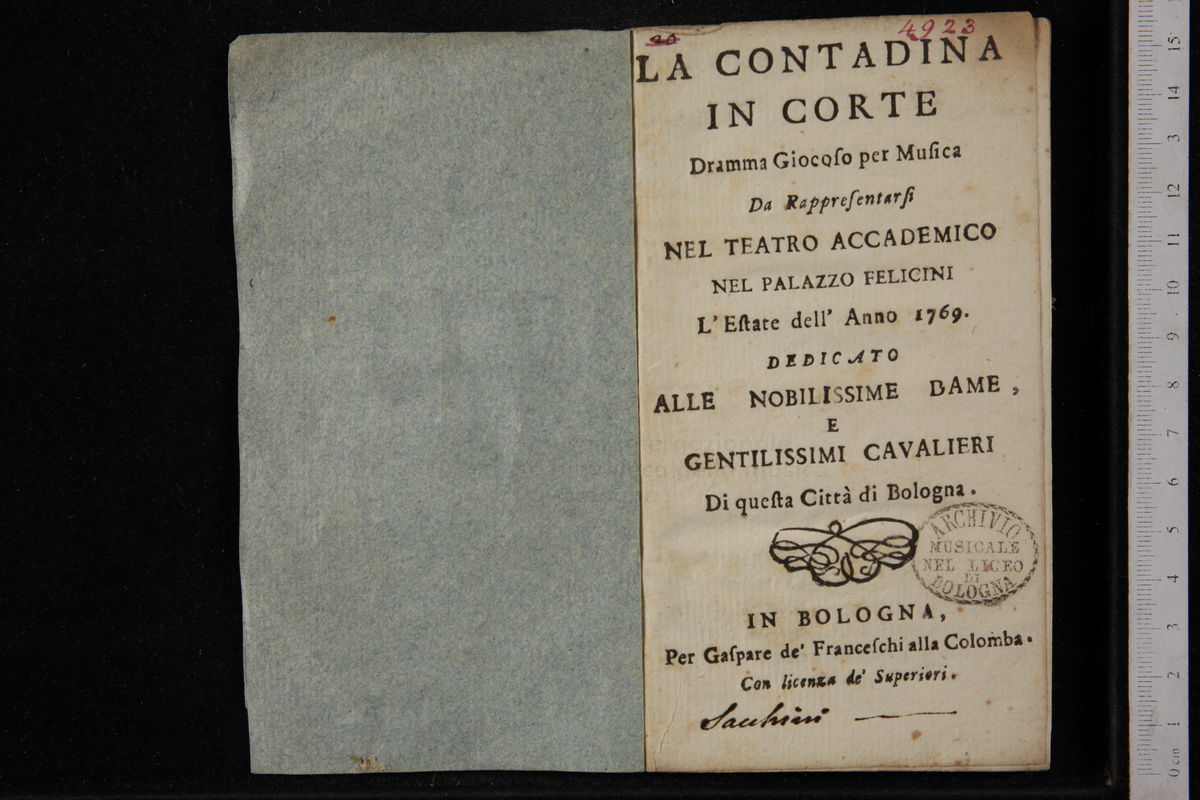 20 4923
LA CONTADINA
IN CORTE
Dramma Giocoſo per Muſica
Da Rappreſentarſi
NEL TEATRO ACCADEMICO
NEL PALAZZO FELICINI
L'Eſtate dell' Anno 1769.
DEDICATO
ALLE NOBILISSIME DAME,
E
GENTILISSIMI CAVALIERI
Di queſta Città di Bologna.
ARCHIVIO
MUSICALE
NEL LICEO
DI
BOLOGNA
IN BOLOGNA,
Per Gaſpare de' Franceſchi alla Colomba.
Con licenza de' Superiori.
Sacchini
0 cm 1 2 3 4 5 6 7 8 9 10 11 12 3 14 15